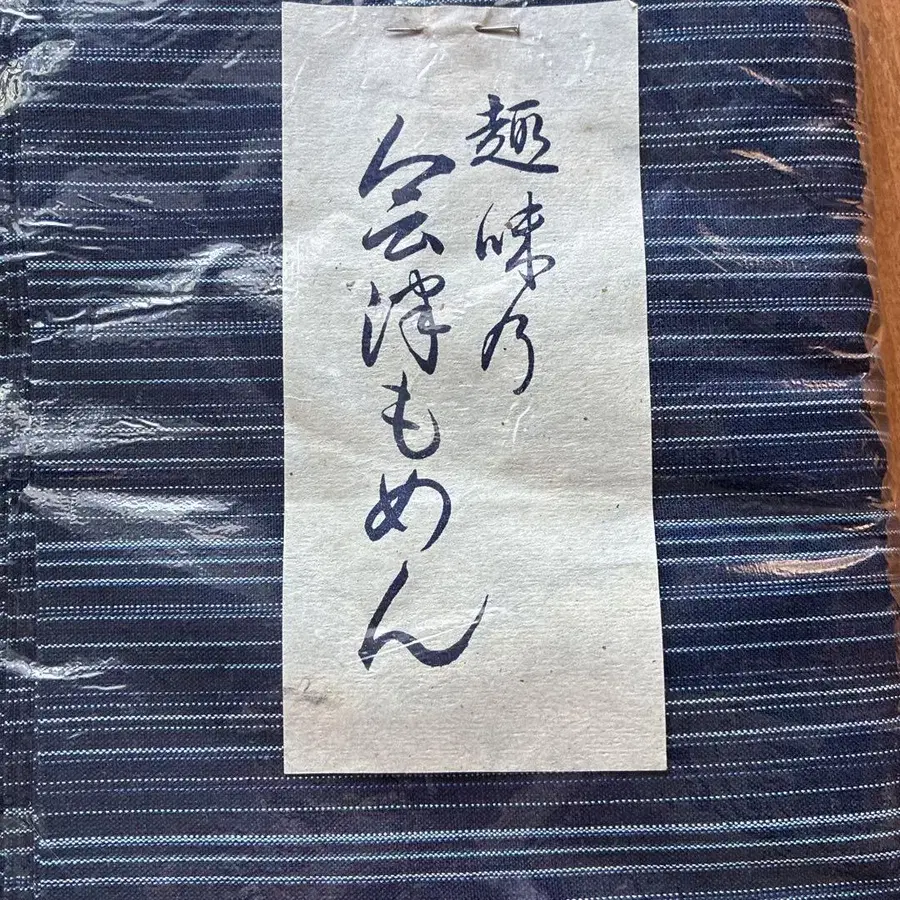 趣味乃
会津もめん